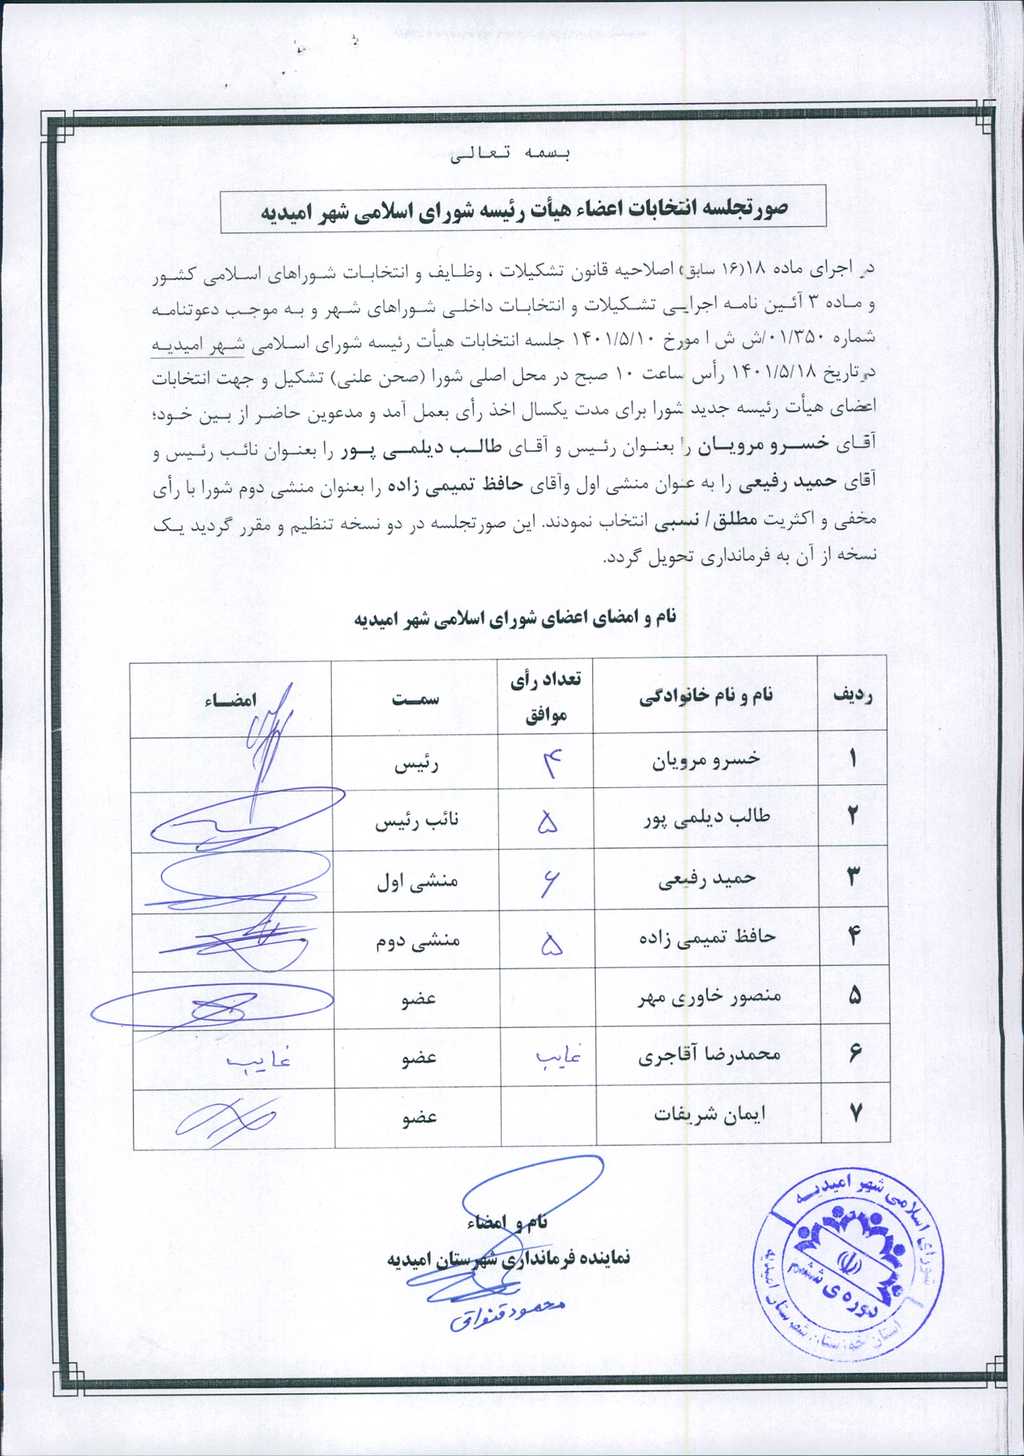 بسمه تعالی
صورتجلسه انتخابات اعضاء هیأت رئیسه شورای اسلامی شهر امیدیه
در اجرای ماده ۱۸(۱۶ سابق) اصلاحیه قانون تشکیلات ، وظایف و انتخابات شوراهای اسلامی کشور
و ماده ۳ آئین نامه اجرایی تشکیلات و انتخابات داخلی شوراهای شهر و به موجب دعوتنامه
شماره ۰۱/۳۵۰/ش ش ا مورخ ۱۴۰۱/۵/۱۰ جلسه انتخابات هیأت رئیسه شورای اسلامی شهر امیدیه
درتاریخ ۱۴۰۱/۵/۱۸ رأس ساعت ۱۰ صبح در محل اصلی شورا (صحن علنی) تشکیل و جهت انتخابات
اعضای هیأت رئیسه جدید شورا برای مدت یکسال اخذ رأی بعمل آمد و مدعوین حاضر از بین خود؛
آقای خسرو مرویان را بعنوان رئیس و آقای طالب دیلمی پور را بعنوان نائب رئیس و
آقای حمید رفیعی را به عنوان منشی اول وآقای حافظ تمیمی زاده را بعنوان منشی دوم شورا با رأی
مخفی و اکثریت مطلق/ نسبی انتخاب نمودند. این صورتجلسه در دو نسخه تنظیم و مقرر گردید یک
نسخه از آن به فرمانداری تحویل گردد.
نام و امضای اعضای شورای اسلامی شهر امیدیه
ردیف نام و نام خانوادگی تعداد رأی موافق سمت امضاء
۱ خسرو مرویان ۴ رئیس
۲ طالب دیلمی پور ۵ نائب رئیس
۳ حمید رفیعی ۶ منشی اول
۴ حافظ تمیمی زاده ۵ منشی دوم
۵ منصور خاوری مهر عضو
۶ محمدرضا آقاجری غایب عضو غایب
۷ ایمان شریفات عضو
نام و امضاء
نماینده فرمانداری شهرستان امیدیه
محمود
شورای اسلامی شهر امیدیه
دوره ی ششم
استان خوزستان شهرستان امیدیه